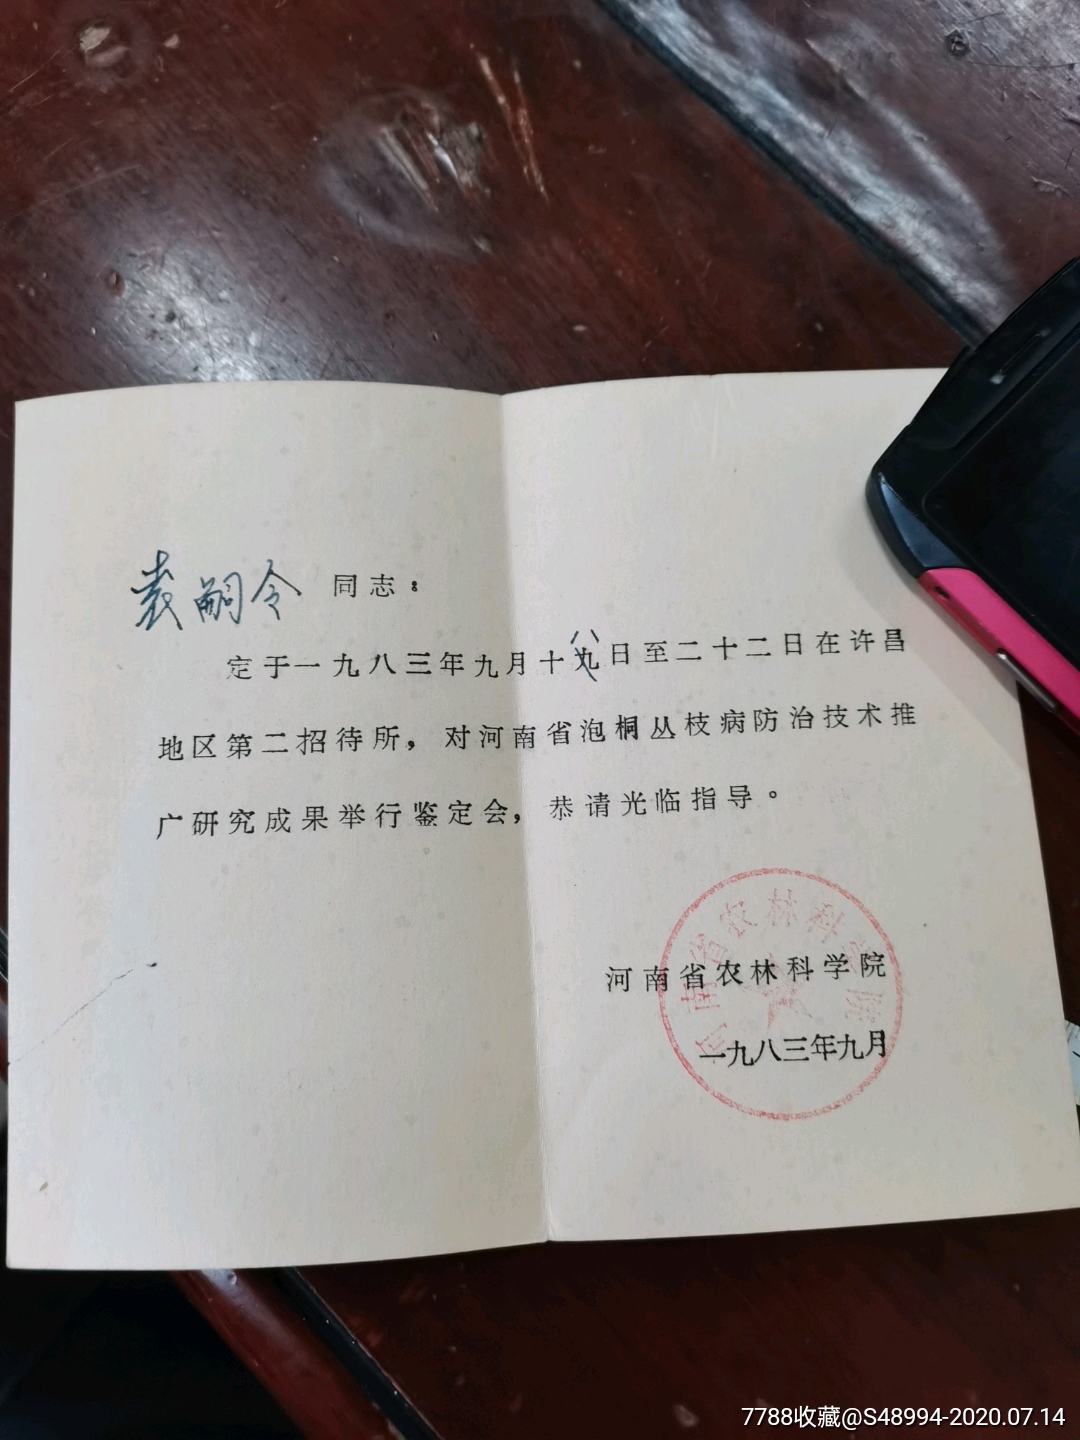 袁嗣令 同志：
定于一九八三年九月十八九日至二十二日在许昌
地区第二招待所，对河南省泡桐丛枝病防治技术推
广研究成果举行鉴定会，恭请光临指导。
河南省农林科学院
河南省农林科学院
一九八三年九月
7788收藏@S48994-2020.07.14